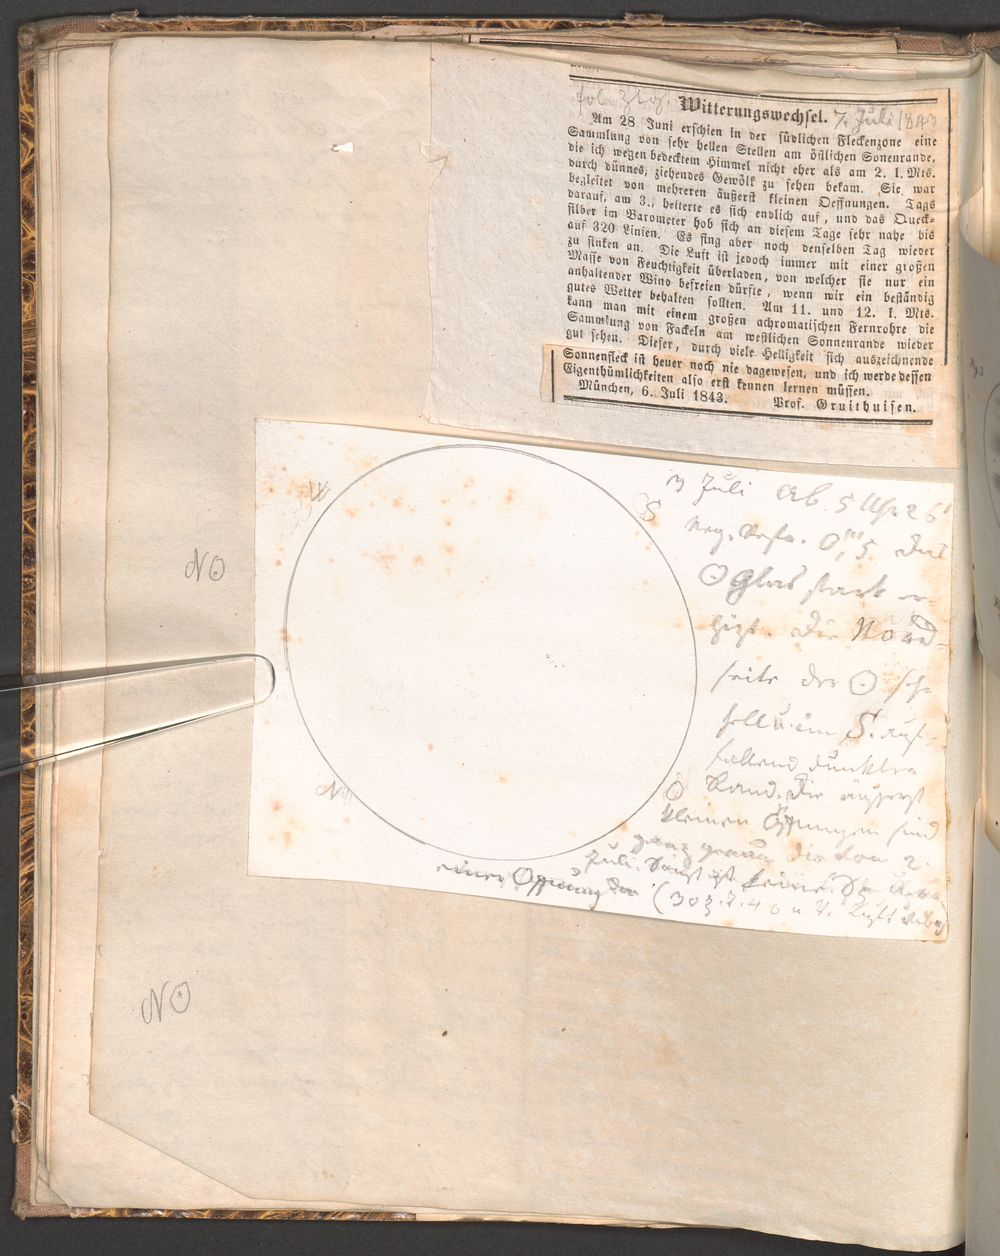 Witterungswechsel. 7. Juli 1843
Am 28 Juni erschien in der südlichen Fleckenzone eine
Sammlung von sehr hellen Stellen am östlichen Sonenrande,
die ich wegen bedecktem Himmel nicht eher als am 2. l. Mts.
durch dünnes, ziehendes Gewölk zu sehen bekam. Sie war
begleitet von mehreren äußerst kleinen Oeffnungen. Tags
darauf, am 3., heiterte es sich endlich auf, und das Queck-
silber im Barometer hob sich an diesem Tage sehr nahe bis
auf 320 Linien. Es fing aber noch denselben Tag wieder
zu sinken an. Die Luft ist jedoch immer mit einer großen
Masse von Feuchtigkeit überladen, von welcher sie nur ein
anhaltender Wind befreien dürfte, wenn wir ein beständig
gutes Wetter behalten sollten. Am 11. und 12. l. Mts.
kann man mit einem großen achromatischen Fernrohre die
Sammlung von Fackeln am westlichen Sonnenrande wieder
gut sehen. Dieser, durch viele Helligkeit sich auszeichnende
Sonnenfleck ist heuer noch nie dagewesen, und ich werde dessen
Eigenthümlichkeiten also erst kennen lernen müssen.
München, 6. Juli 1843. Prof. Gruithuisen.
W
S
N
NO
3 Juli Ab. 5 Uhr 26'
0,5 das
glas stark er-
hizt. Die Nord-
seite der ☉
hell u. im S. auf-
fallend dunkler
Rand. Die äußerst
kleinen Öffnungen sind
ganz genau die vom 2.
Juli. Sonst ist keine
einer Öffnung
NO